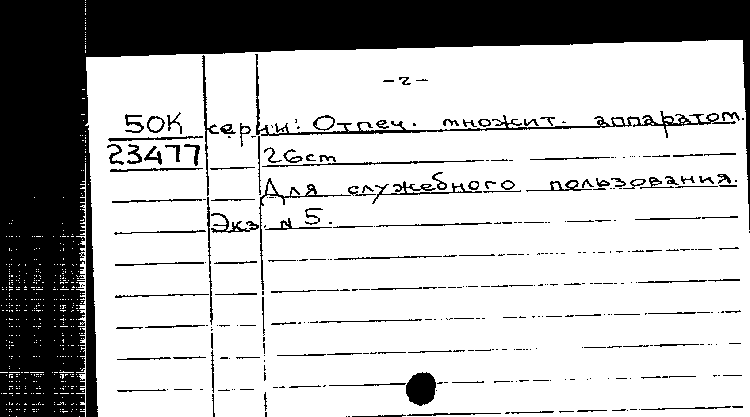 -2-
50К серии: Отпеч. множит. аппаратом.
23477 26cm
Для служебного пользования.
Экз. N 5.